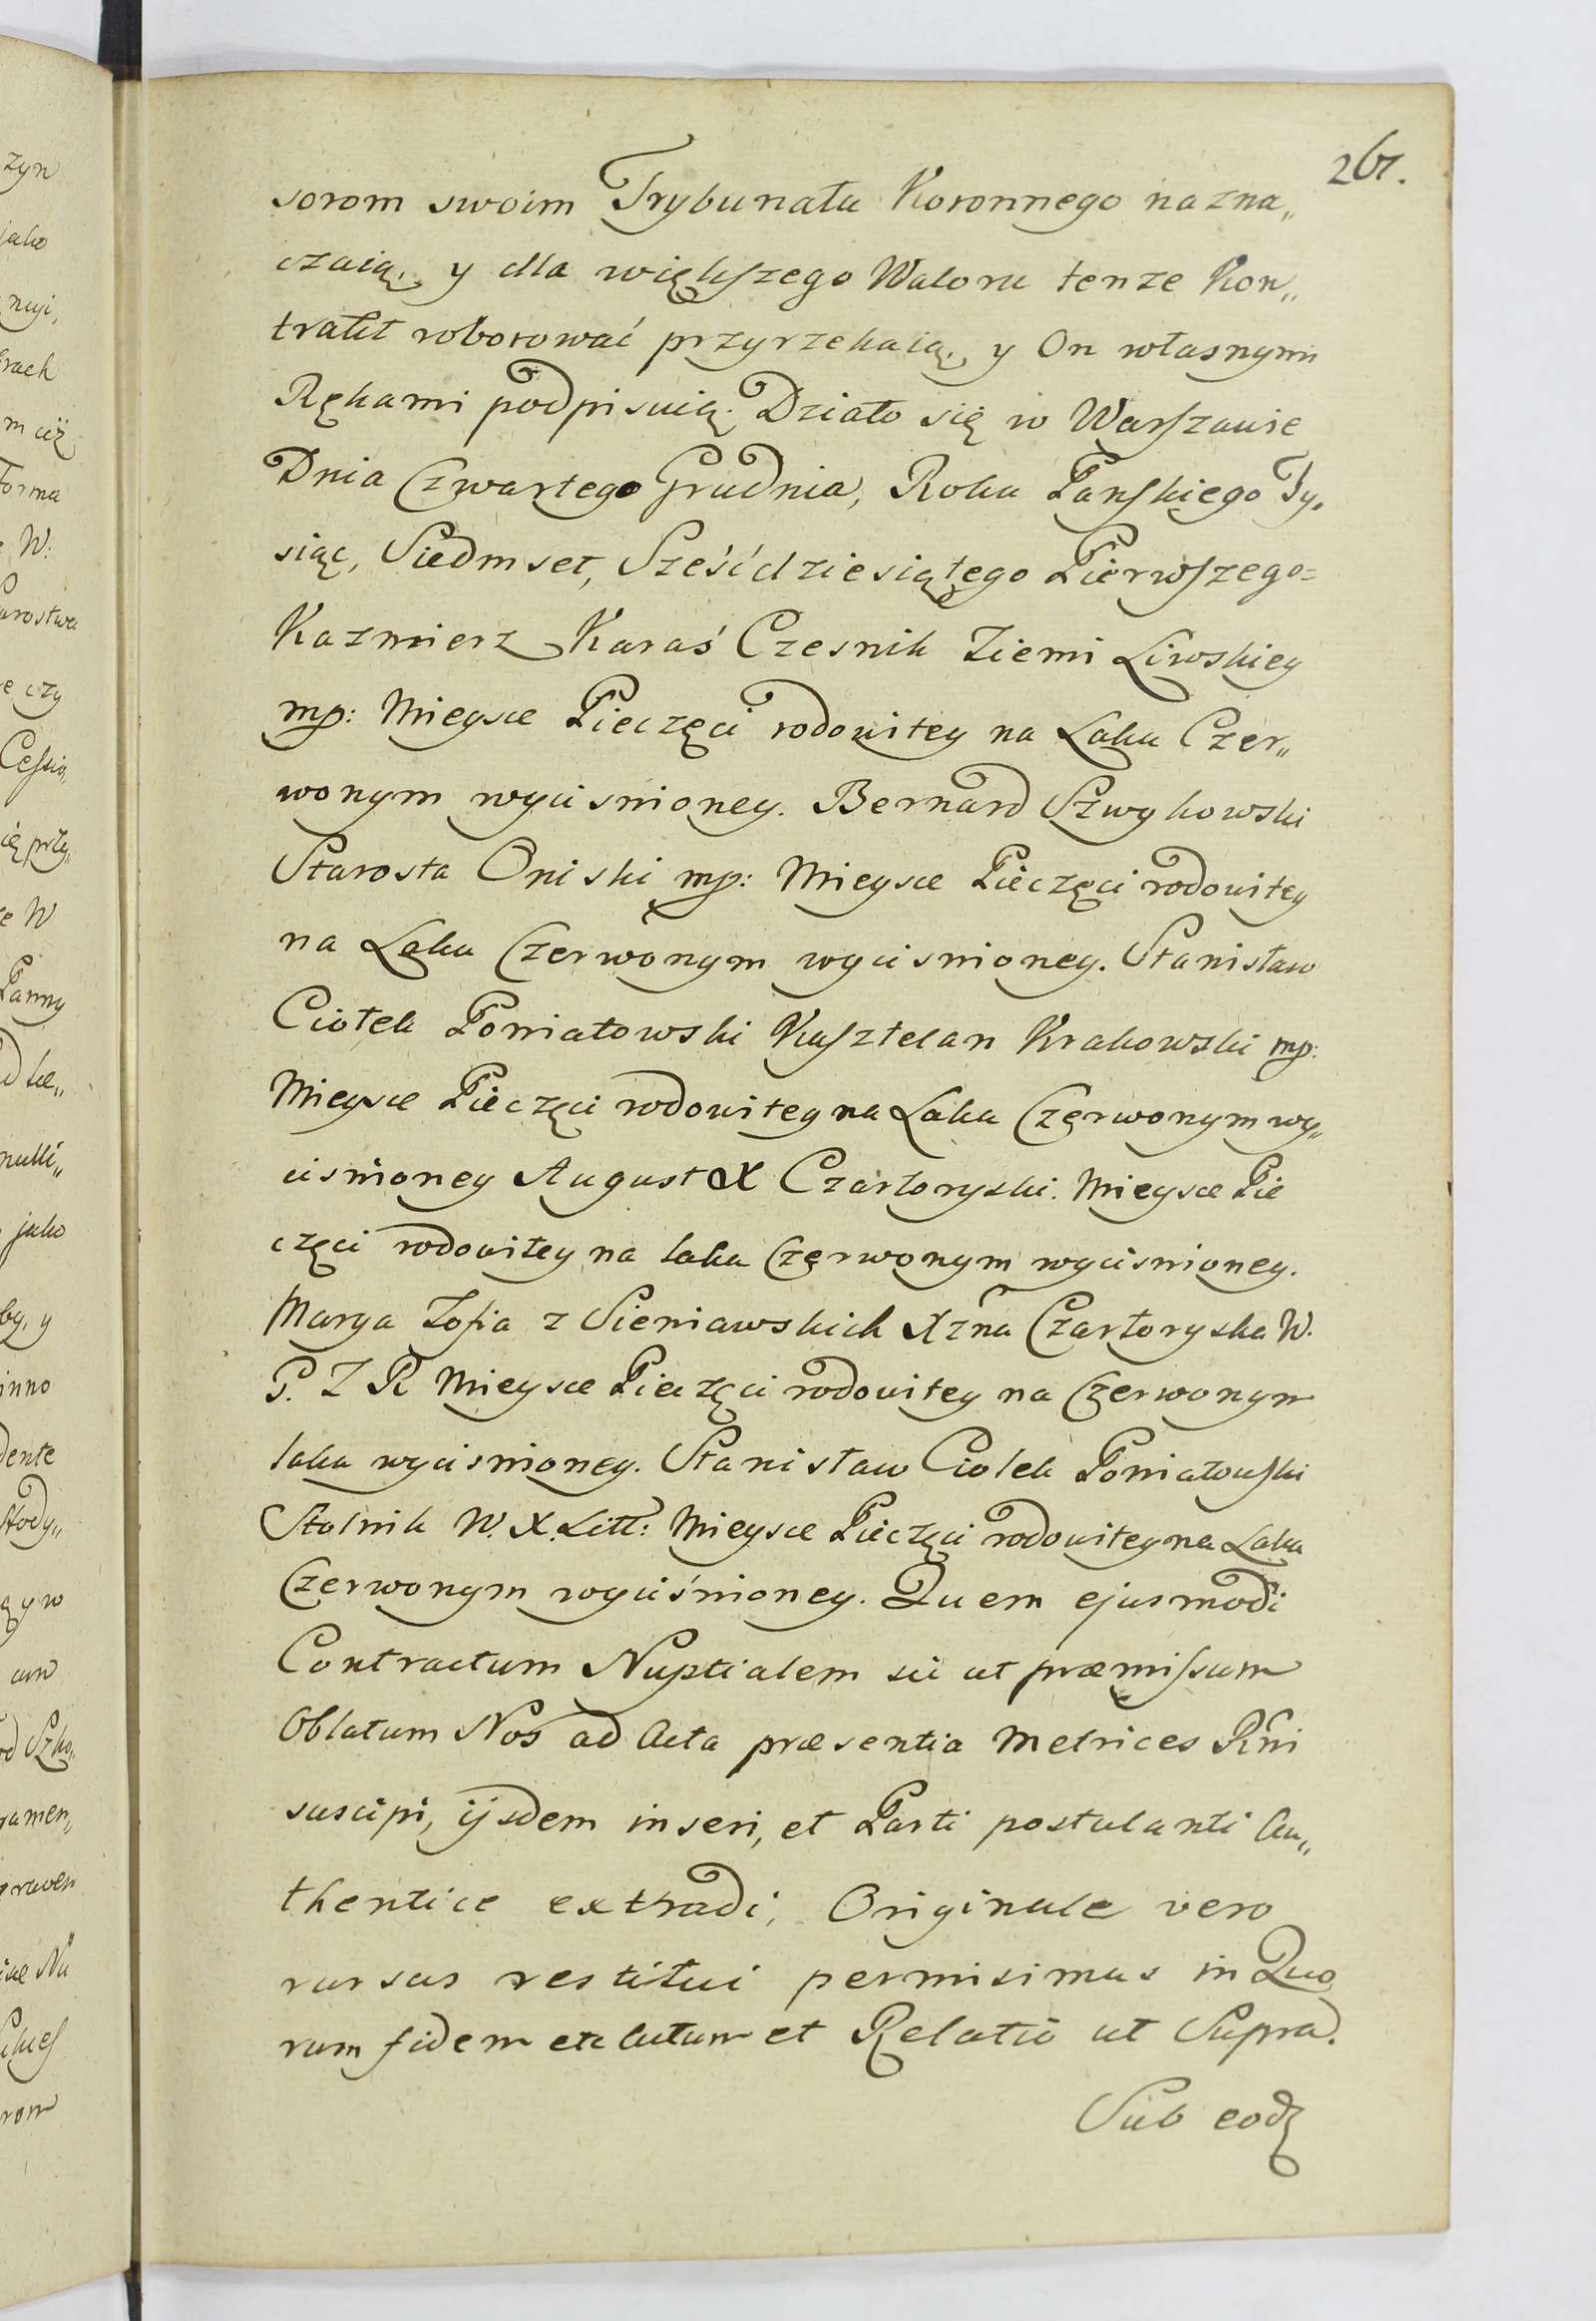 267.
sorom swoim Trybunału Koronnego nazna„
czaią, y dla więkſzego Waloru tenze Kon„
trakt roborować przyrzekaią, y On własnymi
Rękami podpisuią. Działo się w Warſzawie
Dnia Czwartego Grudnia, Roku Panſkiego Ty„
siąc, Siedmset, Sześćdziesiątego Pierwſzego=
Kazmierz Karaś Czesnik Ziemi Liwskiey
mp: Mieysce Pieczęci rodowitey na Laku Czer„
wonym wycisnioney. Bernard Szwykowski
Starosta Oniski mp: Mieysce Pieczęci rodowitey
na Laku Czerwonym wycisnioney. Stanisław
Ciołek Poniatowski Kaſztelan Krakowski mp:
Mieysce Pieczęci rodowitey na Laku Czerwonym wy„
cisnioney August X Czartoryski. Mieysce Pie
częci rodowitey na laku Czerwonym wycisnioney.
Marya Zofia z Sieniawskich Xżna Czartoryska W.
P. Z R Mieysce Pieczęci rodowitey na Czerwonym
laku wycisnioney. Stanisław Ciołek Poniatowſki
Stolnik W. X. Litt: Mieysce Pieczęci rodowitey na Laku
Czerwonym wyciśnioney. Quem ejusmodi
Contractum Nuptialem sic ut præmiſsum
Oblatum Nos ad Acta præsentia Metrices Rñi
suscipi, ijsdem inseri, et Parti postulanti Au„
thentice extradi, Originale vero
rursus restitui permisimus in Quo
rum fidem etc Actum et Relatio ut Supra.
Sub eodꝫ